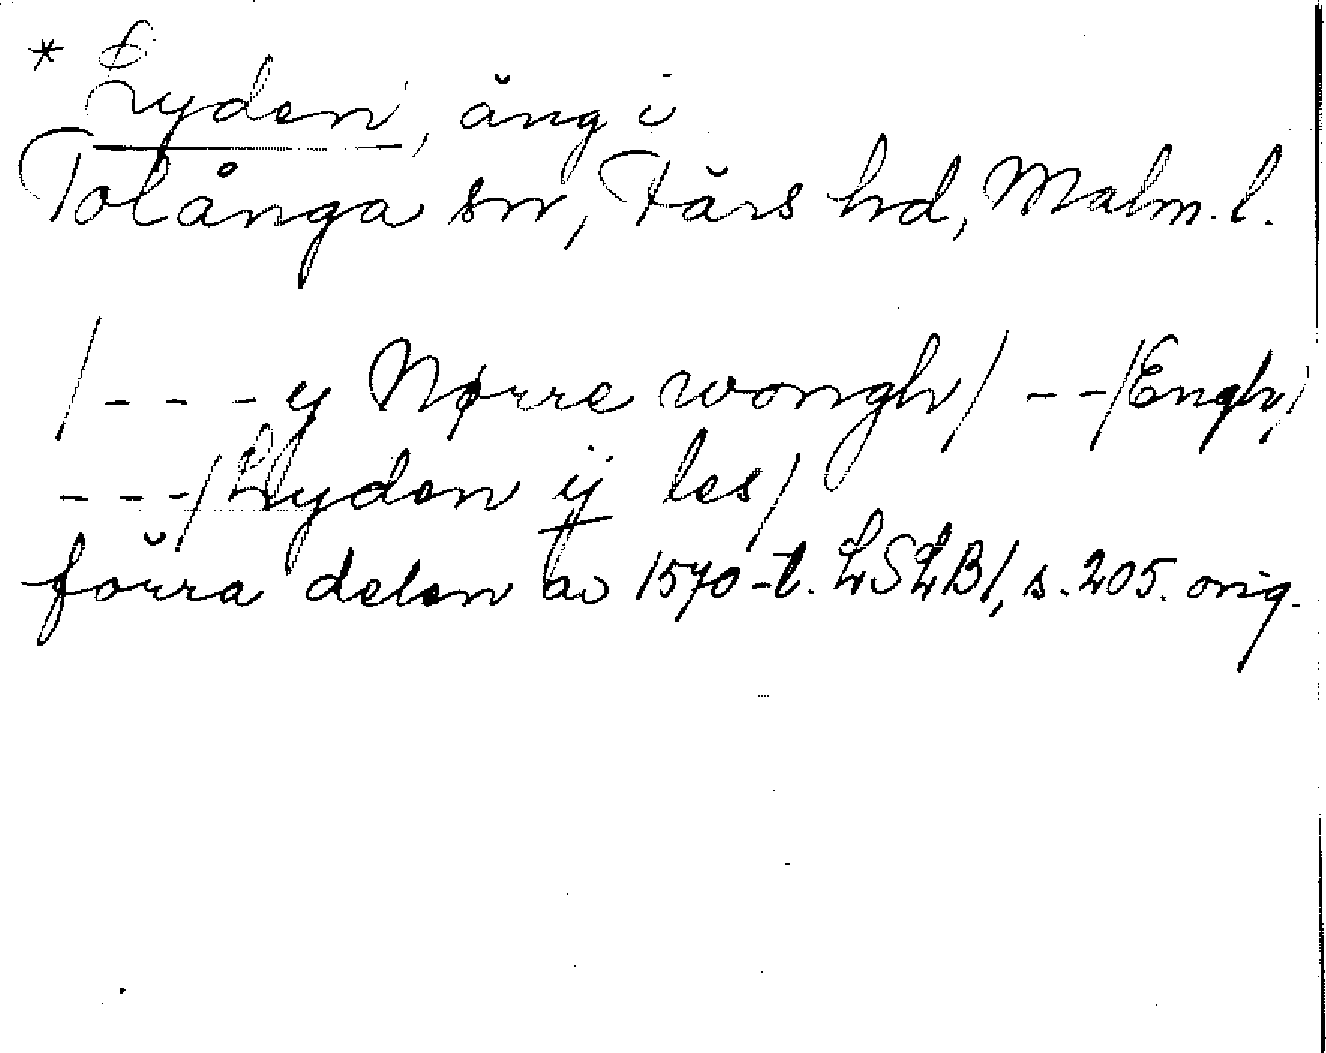 * Lyden, äng i
Tolånga sn, Färs hd, Malm. l.
/- - - y Nørre wongh/ - -/Engh/
- - -/ Lyden ij les/
förra delen av 1570-t. LSLB1, s. 205. orig.